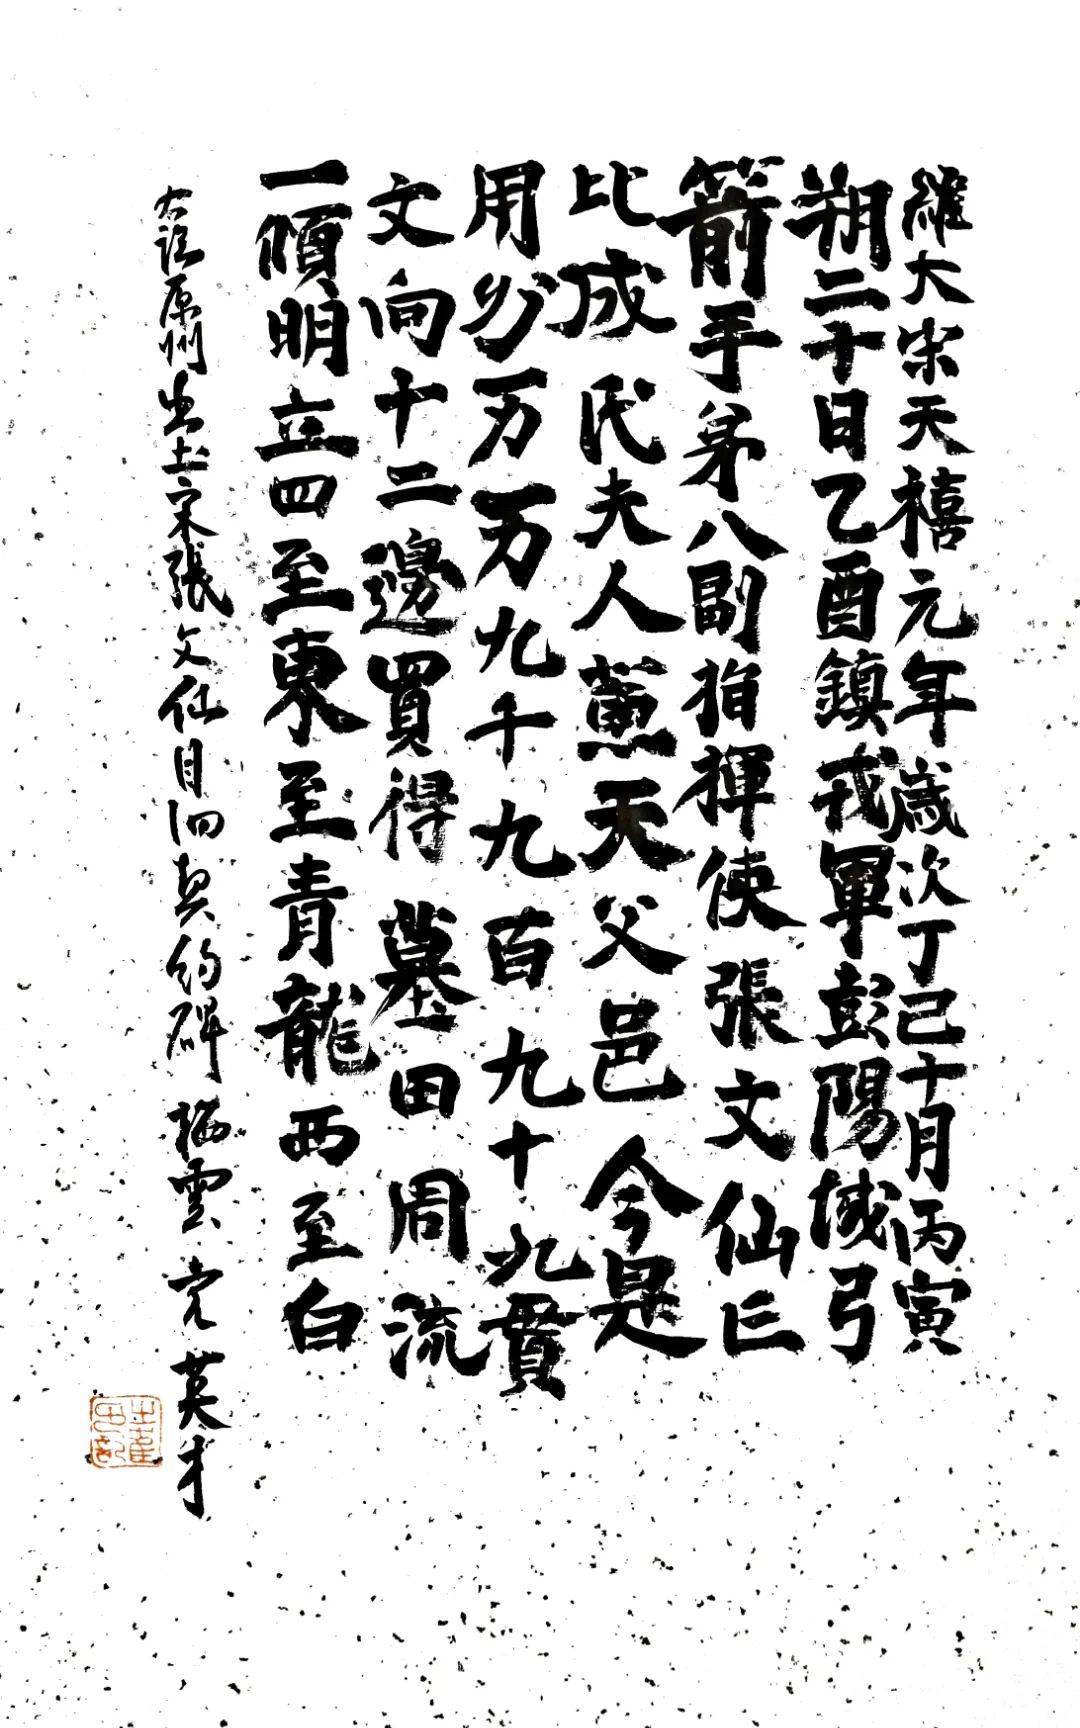 維大宋天禧元年歲次丁己十月丙寅
朔二十日乙酉鎮戎軍彭陽城弓
箭手弟八副指揮使張文仙亡
比咸氏夫人薨天父邑今是
用万万九千九百九十九貫
文向十二邊買得墓田周流
一傾明立四至東至青龍西至白
右臨原州出土宋張文仙自冊契約碑 栖雲 完英才